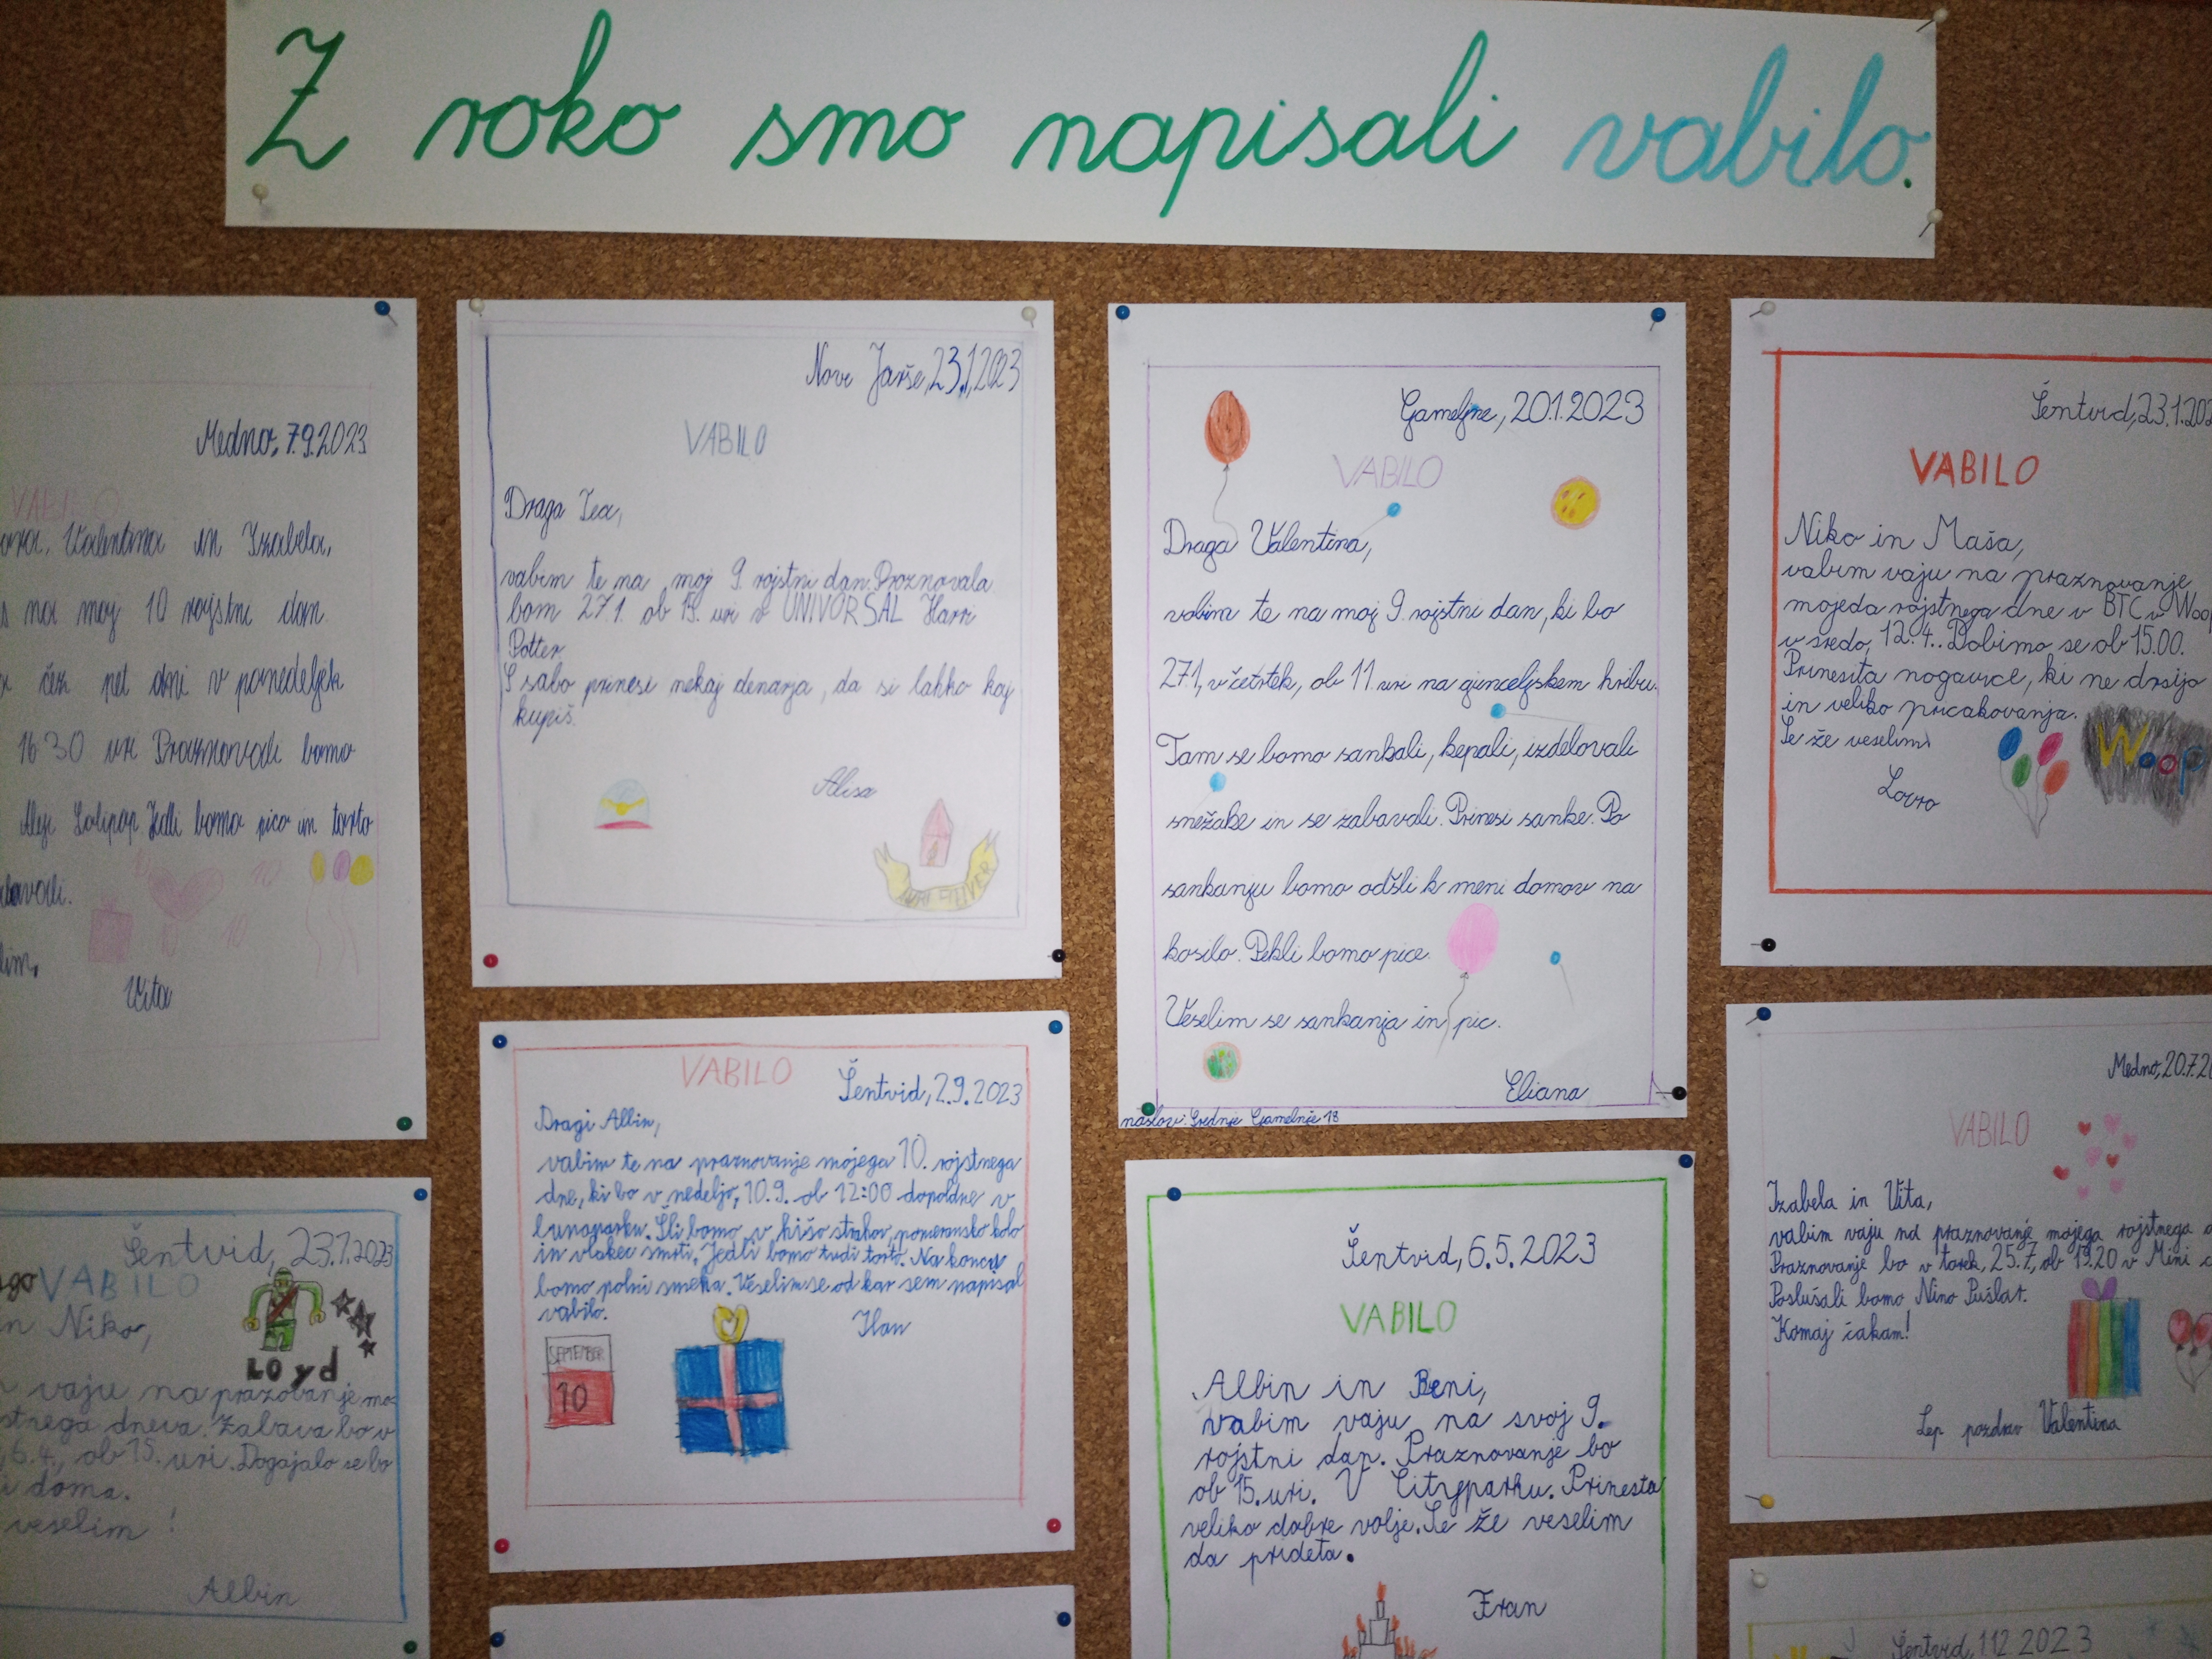 Z roko smo napisali vabilo.
Medno, 7.9.2023
VABILO
Valentina in Izabela,
na moj 10 rojstni dan
čez pet dni v ponedeljek
16 30 uri Praznovali bomo
Lolipop Jedli bomo pico in torto
Vita
Nove Jarše, 23.1.2023
VABILO
Draga Tea,
vabim te na moj 9. rojstni dan. Praznovala
bom 27.1. ob 15. uri v UNIVORSAL Harri
Potter
S sabo prinesi nekaj denarja, da si lahko kaj
kupiš.
Alisa
Gameljne, 20.1.2023
VABILO
Draga Valentina,
vabim te na moj 9. rojstni dan, ki bo
27.1, v četrtek, ob 11 uri na gunceljskem hribu.
Tam se bomo sankali, kepali, izdelovali
snežake in se zabavali. Prinesi sanke. Po
sankanju bomo odšli k meni domov na
kosilo. Pekli bomo pice.
Veselim se sankanja in pic.
Eliana
naslov: Srednje Gamelnje 18
Šentvid, 23.1.202
VABILO
Niko in Maša,
vabim vaju na praznovanje
mojeda rojstnega dne v BTC v Woop
v sredo, 12.4.. Dobimo se ob 15.00.
Prinesita nogavice, ki ne drsijo
in veliko pričakovanja.
Se že veselim
Woop
Lovro
Šentvid, 23.1.2023
VABILO
in Niko,
LOyd
vaju na prazovanje mo-
stnega dneva. Zabava bo v
6.4., ob 15. uri. Dogajalo se bo
doma.
veselim!
Albin
VABILO
Šentvid, 2.9.2023
Dragi Albin,
vabim te na praznovanje mojega 10. rojstnega
dne, ki bo v nedeljo, 10.9. ob 12:00 dopoldne v
lunaparku. Šli bomo v hišo strahov, panoramsko kolo
in vlakec smrti. Jedli bomo tudi torto. Na koncu
bomo polni smeha. Veselim se od kar sem napisal
vabilo.
Ilan
SEPTEMBER
10
Šentvid, 6.5.2023
VABILO
Albin in Beni,
vabim vaju na svoj 9.
rojstni dan. Praznovanje bo
ob 15. uri. V Cityparku. Prinesta
veliko dobre volje. Se že veselim
da prideta.
Fran
Medno, 20.7.20
VABILO
Izabela in Vita,
vabim vaju na praznovanje mojega rojstnega
Praznovanje bo v torek, 25.7, ob 19.20 v Mini
Poslušali bomo Nino Pušlar.
Komaj čakam!
Lep pozdrav Valentina
Šentvid, 1.12.2023